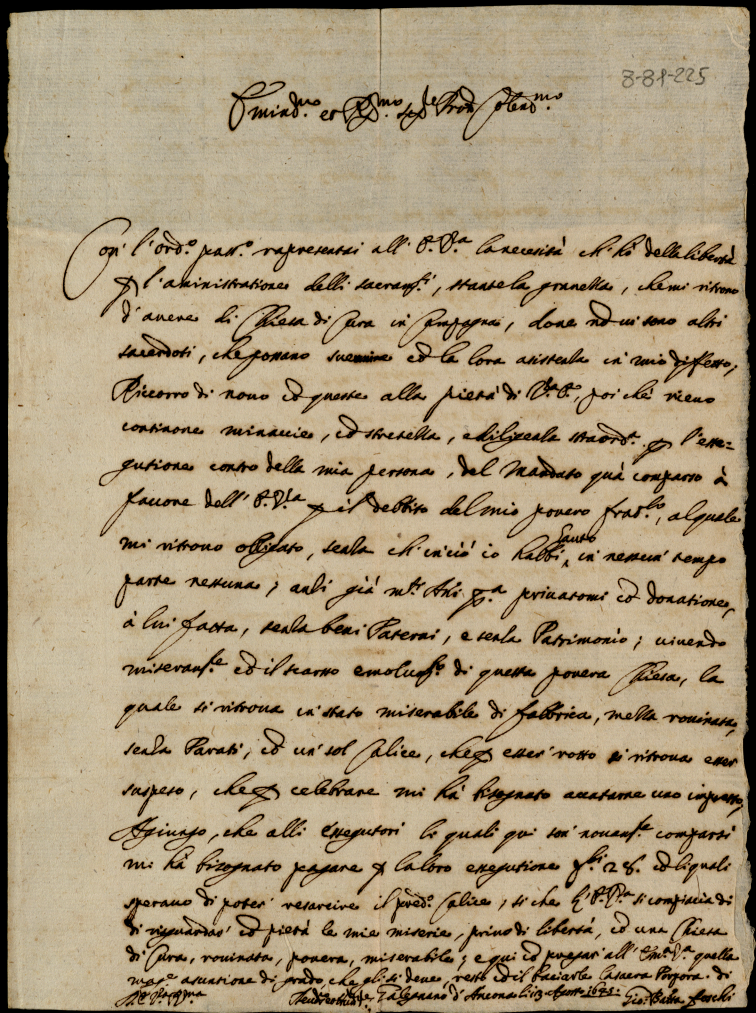 8-81-225
Emin.mo et R.mo Sig.re Pron Colend.mo
Con l'ord.o pass.o rapresentai all' E.V.a la necesità ch'hò della libertà
p l'aministratione delli sacram.ti, stante la granella, che mi ritrovo
d'avere di Chiesa di Cura in Campagna, dove nō vi sono altri
sacerdoti, che possano suenire cō la loro asistenla in mio diffetto;
Riccorro di novo cō queste alla pietà di V.E., poi chè ricevo
continove minaccie, cō stretella, e diligenla straord.a p l'esse=
gutione contro della mia persona, del Mandato quà comparso à
favore dell' E.V.a p il debbito del mio povero frad.lo, al quale
mi ritrovo obligato, senla ch'in ciò io habbi hauto in nessun' tempo
parte nessuna; anli già m.ti Ani p.a privatomi cō donatione,
à lui fatta, senla beni Paterni, e senla Patrimonio; vivendo
miseram.te cō il scarso emolum.to di questa povera Chiesa, la
quale si ritrova in stato miserabile di fabbrica, mella rovinata,
senla Parati, cō un' sol Calice, che p esser' rotto si ritrova esser
suspeso, che p celebrare mi hà bisognato accatarne uno impresto;
Agiungo, che alli essegutori li quali qui son' novam.te comparsi
mi hà bisognato pagare p la loro essegutione 28. cō li quali
speravo di poter' resarcire il pred.o Calice, si che l'E.V.a si compiaccia di
di risguardar' cō pietà le mie miserie, privo di libertà, cō una Chiesa
di Cura, rovinata, povera, miserabile; e qui cō pregar' all' Em.a V.a quella
mag.e asuntione di grado, che gli si deve, resto cō il baciarle la sacra Porpora. di
Galignano d'Ancona li 13 Agosto 1675. Gio: Batta